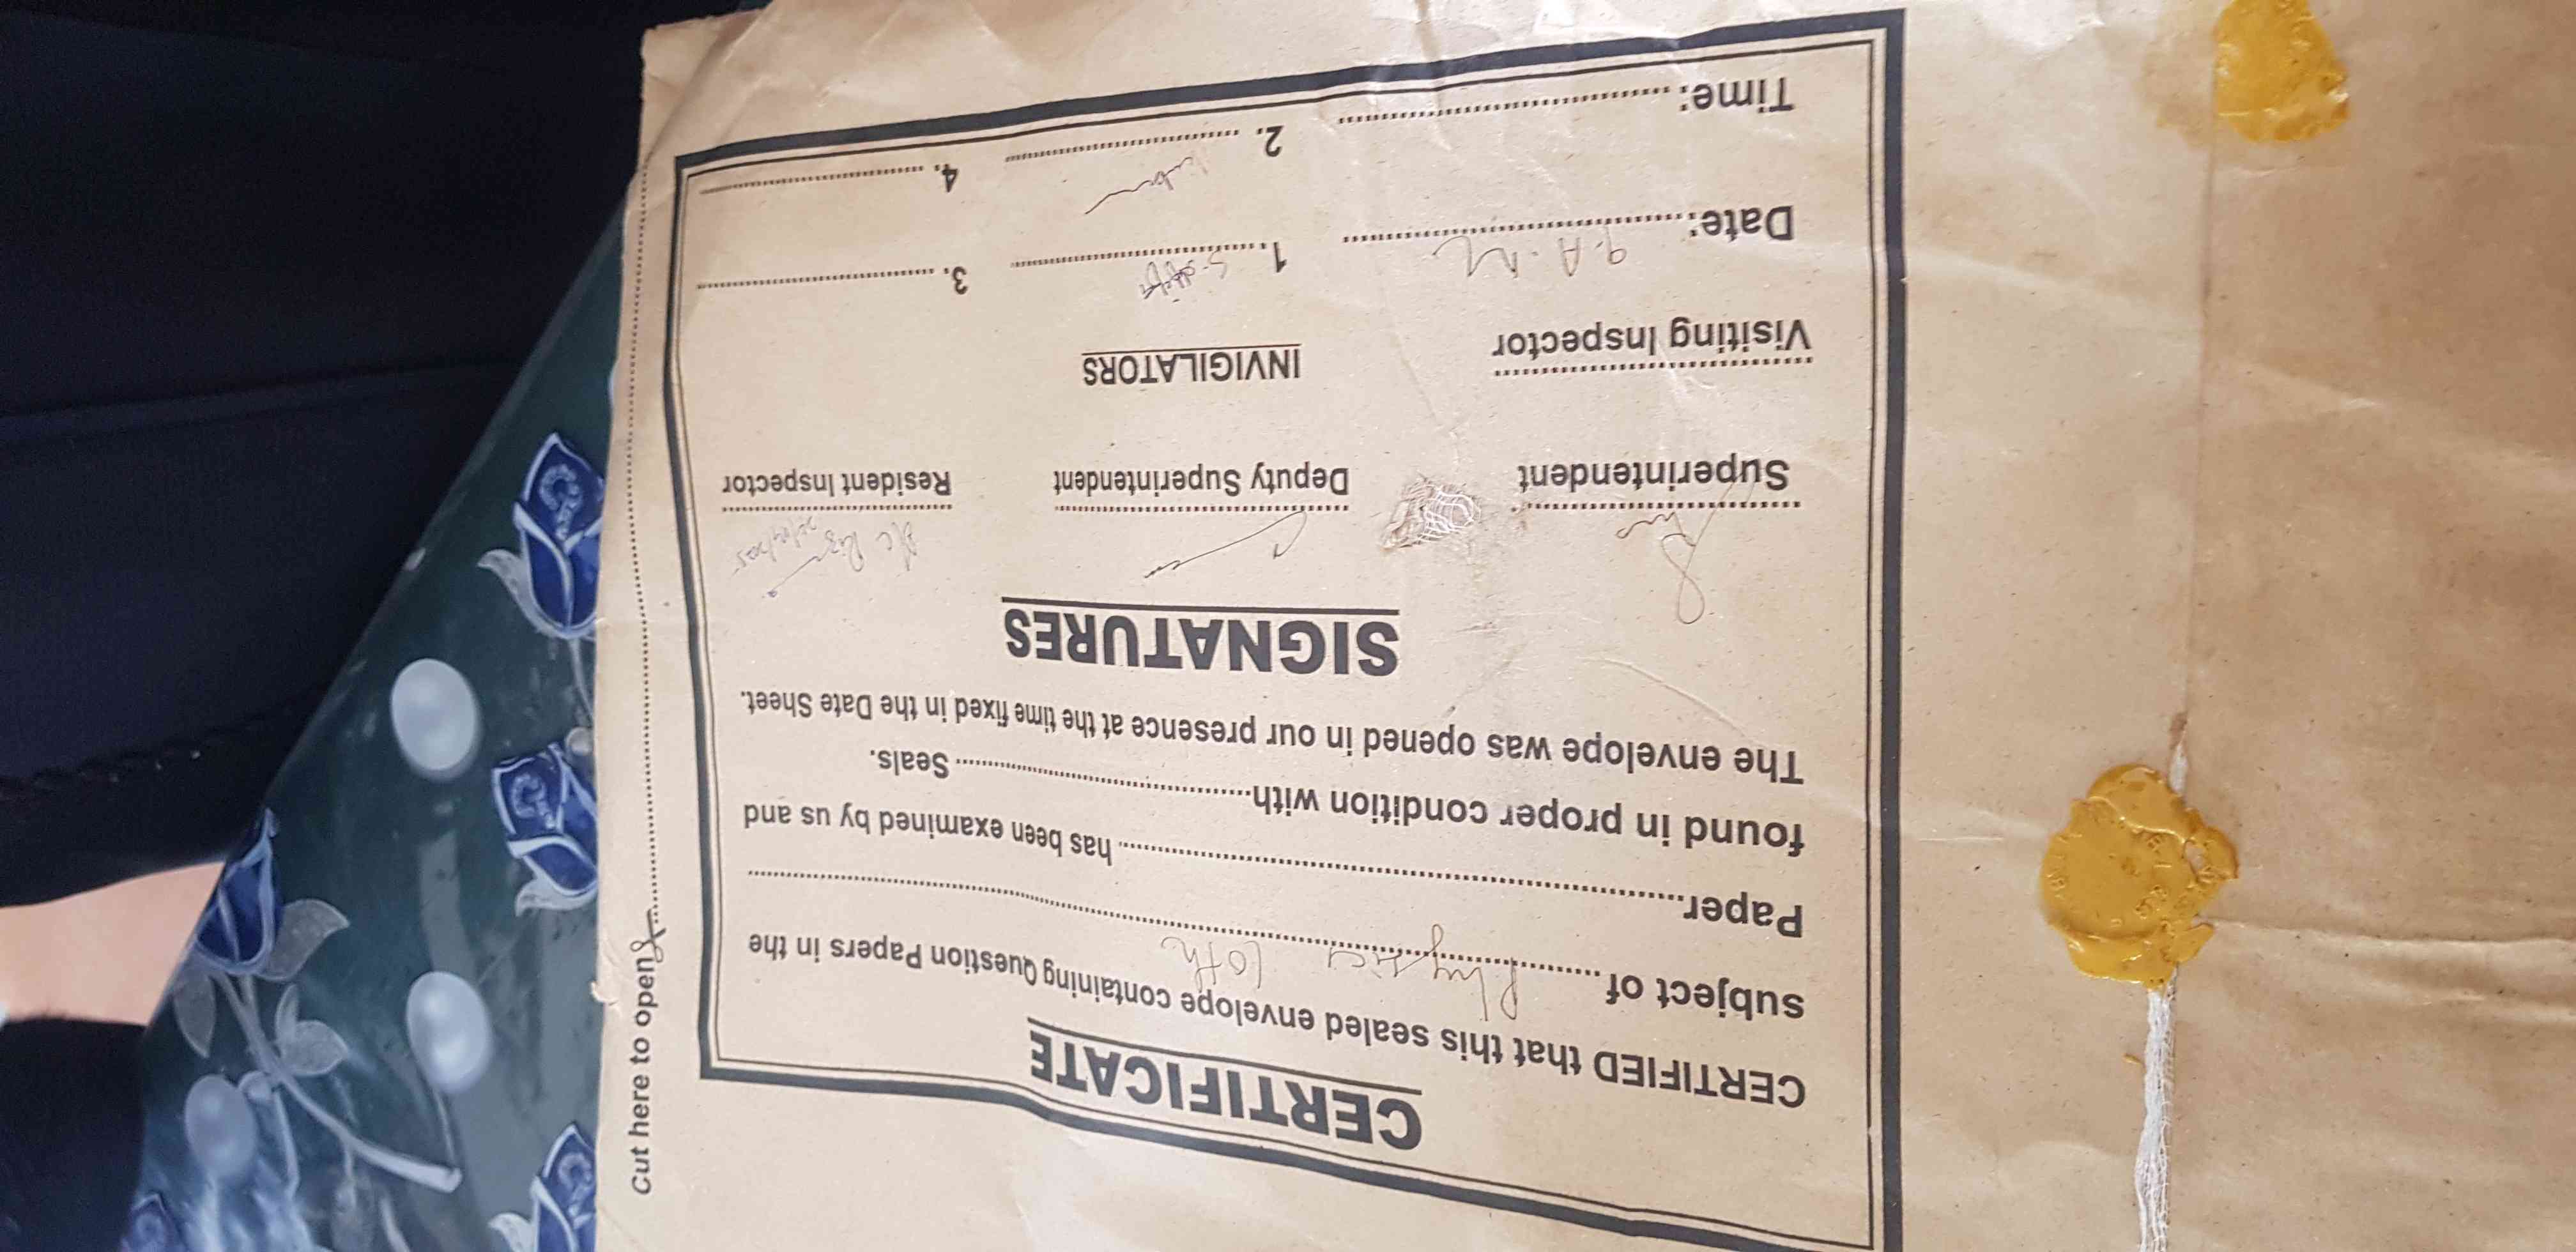 CERTIFICATE
CERTIFIED that this sealed envelope containing Question Papers in the
subject of Physics 10th
Paper has been examined by us and
found in proper condition with Seals.
The envelope was opened in our presence at the time fixed in the Date Sheet.
SIGNATURES
Superintendent Deputy Superintendent Resident Inspector
Visiting Inspector INVIGILATORS
Date: 9.A.M 1. 3.
Time: 2. 4.
Cut here to open